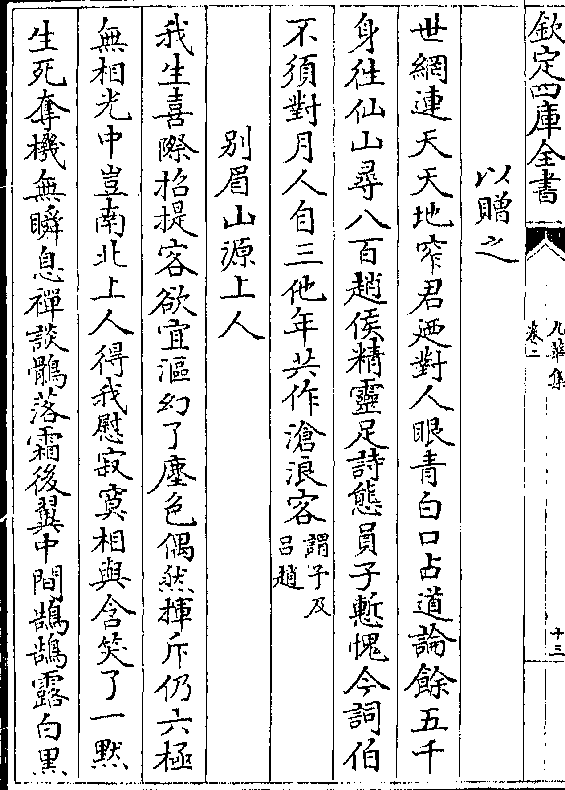 欽定四庫全書
九華集
卷二
十三
以贈之
世網連天天地窄君廼對人眼青白口占道論餘五千
身徃仙山尋八百趙侯精靈足詩態員子慙愧今詞伯
不須對月人自三他年共作滄浪客謂予及吕趙
别眉山源上人
我生喜際招提客欲宜漚幻了塵色偶然揮斥仍六極
無相光中豈南北上人得我慰寂寞相與含笑了一黙
生死奪機無瞬息禪談鶻落霜後翼中間鵠鵠露白黒